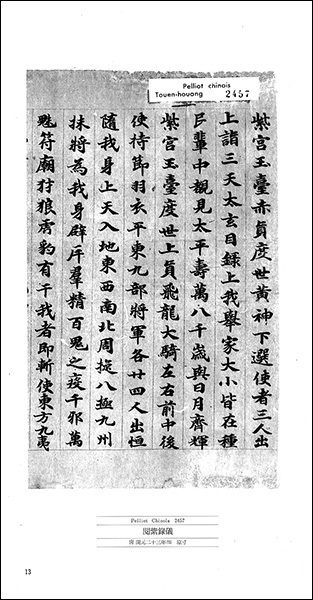 Pelliot chinois
Touen-houang 2457
紫宮玉臺赤員度世黃神下選使者三人出
上諸三天太玄目錄上我舉家大小皆在種
民輩中覩見太平壽萬八千歲與日月齊輝
紫宮玉臺度世上員飛龍大騎左右前中後
使持節羽衣平東九部將軍各廿四人出恒
隨我身上天入地東西南北周旋八極九州
將為我身辟斥羣精百鬼之疫千邪萬
魅符廟狩狼虎豹有干我者即斬使東方九夷
Pelliot Chinois 2457
閱紫錄儀
唐 開元二十三年 原寸
13